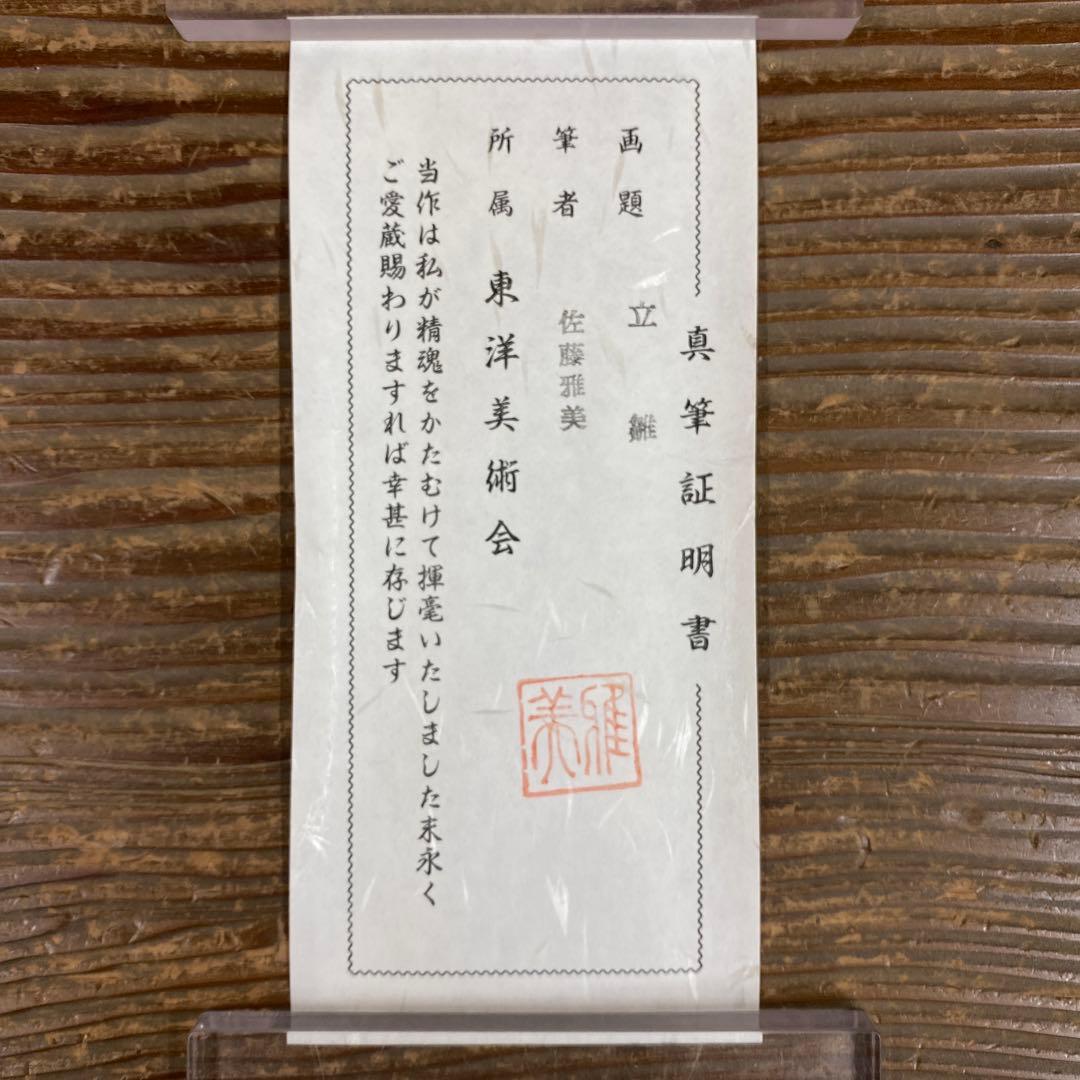 真筆証明書
画題 立雛
筆者 佐藤雅美
所属 東洋美術会
当作は私が精魂をかたむけて揮毫いたしました末永く
ご愛蔵賜わりますれば幸甚に存じます
雅美